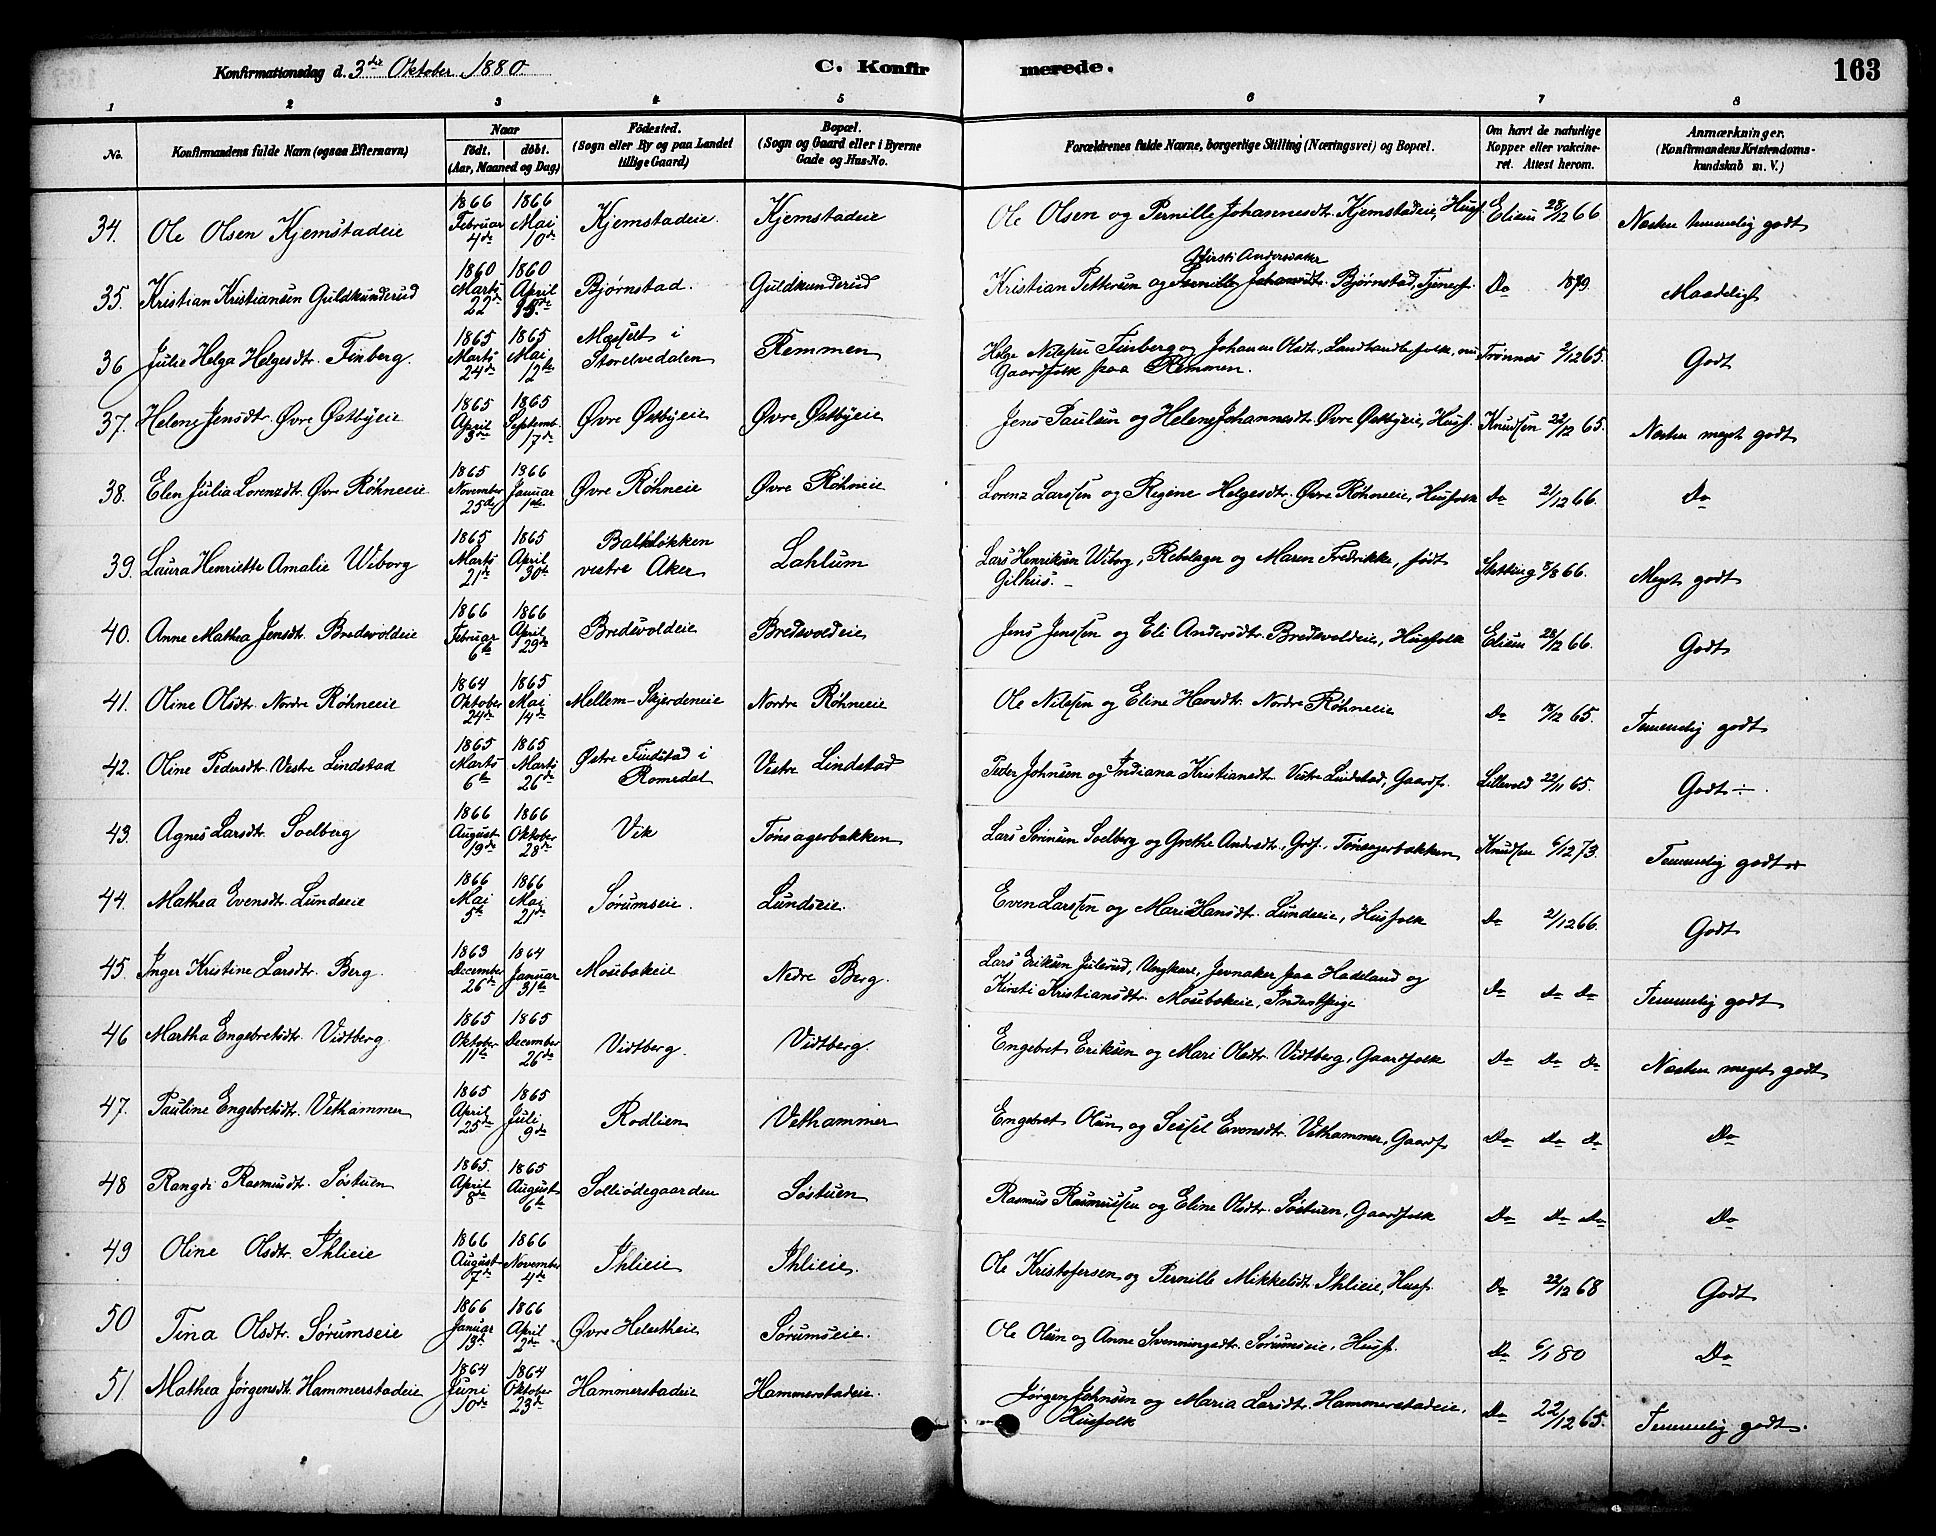 Konfirmationsdag d. 3die Oktober 1880.
C. Konfirmerede.
163
1 2 3 4 5 6 7 8
No.
Konfirmandens fulde Navn (ogsaa Efternavn)
Naar
födt. döbt.
(Aar, Maaned og Dag)
Födested.
(Sogn eller By og paa Landet
tillige Gaard)
Bopæl.
(Sogn og Gaard eller i Byerne
Gade og Hus-No.
Forældrenes fulde Navne, borgerlige Stilling (Næringsvei) og Bopæl.
Om havt de naturlige
Kopper eller vakcine-
ret. Attest herom.
Anmærkninger.
(Konfirmandens Kristendoms-
kundskab m. V.)
34. Ole Olsen Kjemstadeie 1866 Februar 4de 1866 Mai 10de Kjemstadeie. Kjemstadeie Ole Olsen og Pernille Johannesdt. Kjemstadeie, Husf. Eliesen 28/12 66 Næsten temmelig godt
Kirsti Andersdatter
35. Kristian Kristiansen Guldkunderud 1860 Marts 22de 1860 April 15de Bjørnstad. Guldkunderud Kristian Pettersen og Pernille Johansdt. Bjørnstad, Tjenesf. Do 1879. Maadeligt
36 Julie Helga Helgesdtr. Finberg. 1865 Marts 24de 1865 Mai 12te i Storelvedalen Remmen Helge Nilssen Finberg og Johanne Olsdt., Landhandlerfolk, nu Gaardfolk paa Remmen. Trønnes 2/12 65. Godt
37. Helene Jensdtr. Øvre Østbyeie 1865 April 3de 1865 Septemb. 17de Øvre Østbyeie Øvre Østbyeie Jens Paulsen og Helene Johannesdt. Øvre Østbyeie, Husf. Knudsen 22/12 65. Næsten meget godt
38. Elen Julia Lorenzdtr. Øvre Røhneeie 1865 November 25de 1866 Januar 1ste Øvre Røhneie Øvre Røhneie Lorenz Larssen og Regine Helgesdtr. Øvre Røhneeie, Husfolk Do 21/12 66. Do
39. Laura Henriette Amalie Wiborg 1865 Marts 21de 1865 April 30te Balkeløkken vestre Aker Lahlum Lars Henriksen Wiborg, Rebslager og Maren Fredrikke, født Gilhus. 8/8 66. Meget godt
40. Anne Mathea Jensdt. Bredevoldeie 1866 Februar 6te 1866 April 29de Bredevoldeie Bredevoldeie Jens Jenssen og Eli Andersdtr. Bredevoldeie, Husfolk Eliesen 28/12 66. Godt
41. Oline Olsdtr. Nordre Røhneeie 1864 Oktober 24de 1865 Mai 14de Mellem-Skjerdeneie Nordre Røhneeie Ole Nilssen og Eline Hansdtr. Nordre Røhneeie Do 12/12 65. Temmelig godt
42. Oline Pedersdtr. Vestre Lindstad 1865 Marts 6te 1865 Marts 26de Østre Findstad i Romedal Vestre Lindstad Peder Johnsen og Indiana Kristiansdt. Vestre Lindstad, Gaardf. Lillevold 22/11 65. Godt ÷
43. Agnes Larsdtr. Soelberg 1866 August 19de 1866 Oktober 28de Vik Tønsagerbakken Lars Sørensen Soelberg og Grethe Andrsdtr., Grdf. Tønsagerbakken Knudsen 6/12 73. Temmelig godt
44. Mathea Evensdtr. Lundseie 1866 Mai 5te 1866 Mai 21de Sørumseie. Lundseie. Even Larssen og Mari Hansdtr. Lundseie, Husfolk Do 21/12 66. Godt
45. Inger Kristine Larsdtr. Berg. 1863 December 26de 1864 Januar 31te Mosebakeie Nedre Berg. Lars Eriksen Julsrud, Ungkarl, Jevnaker paa Hadeland og Kirsti Kristiansdtr. Mosebakeie, Inderstpige Do Do Do Temmelig godt
46 Martha Engebretsdtr. Vidtberg. 1865 Oktober 11te 1865 December 26de Vidtberg. Vidtberg. Engebret Eriksen og Mari Olsdtr. Vidtberg, Gaardfolk Do Do Do Næsten meget godt
47. Pauline Engebretsdtr. Vethammer 1865 April 25de 1865 Juli 9de Rodlien Vethammer Engebret Olsen og Sessel Evensdtr. Vethammer, Gaardf. Do Do Do Do
48 Rangdi Rasmusdtr. Søstuen 1865. April 8de 1865 August 6te Solliødegaarden Søstuen Rasmus Rasmussen og Eline Olsdtr. Søstuen, Gaardfolk Do Do Do Do
49 Oline Olsdtr. Ihlieie 1866 August 7de 1866 November 4de Ihlieie Ihlieie. Ole Kristofersen og Pernille Mikkelsdt. Ihlieie, Husf. Do 22/12 68 Godt
50 Tina Olsdtr. Sørumseie 1866 Januar 13de 1866 April 2de Øvre Helsetheie Sørumseie. Ole Olsen og Anne Svenningsdtr. Sørumseie, Husf. Do 6/1 80 Do
51. Mathea Jørgensdt. Hammerstadeie 1864 Juni 10de 1864 Oktober 23de Hammerstadeie Hammerstadeie. Jørgen Johnsen og Maria Larsdtr. Hammerstadeie, Husfolk Do 22/12 65. Temmelig godt.